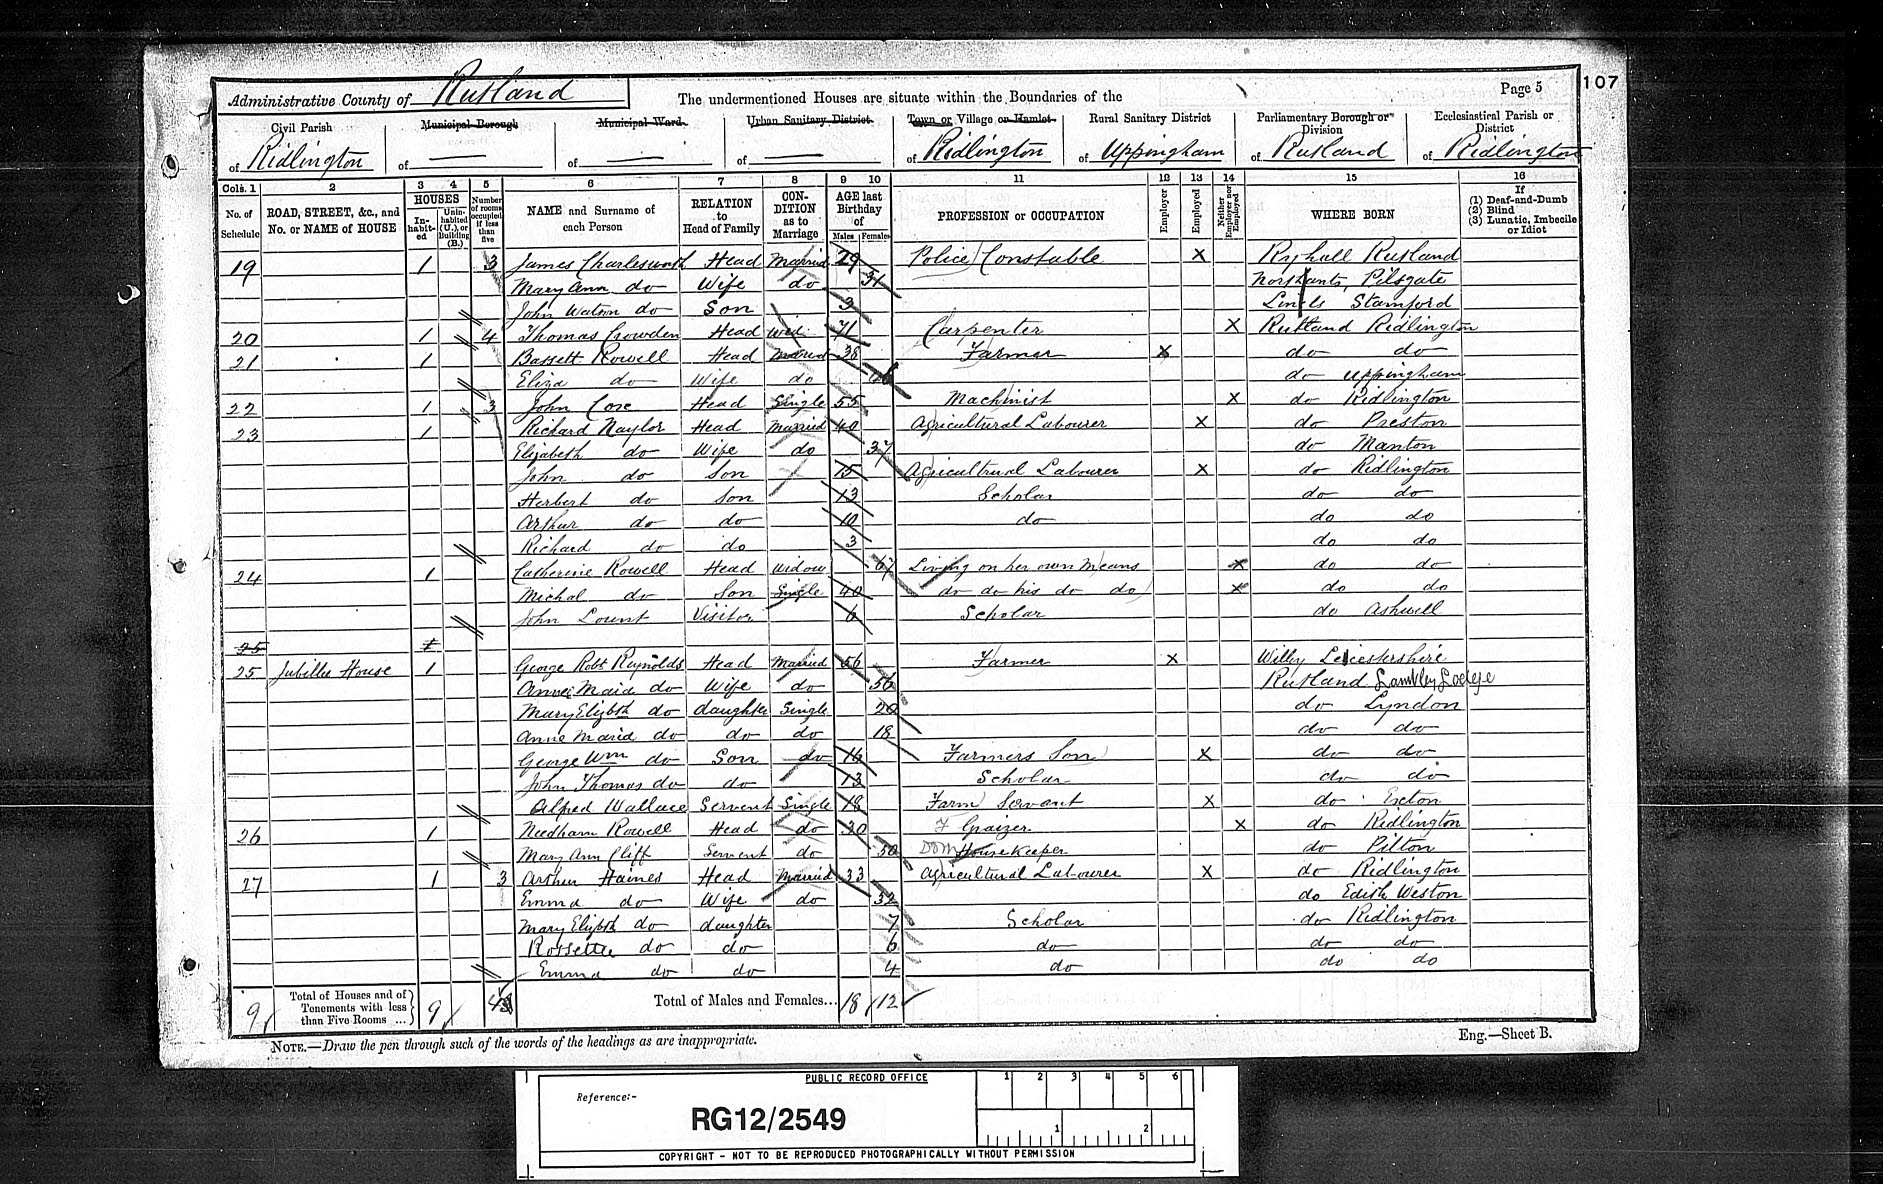 107
Administrative County of Rutland The undermentioned Houses are situate within the Boundaries of the Page 5
Civil Parish of Ridlington
Municipal Borough of —
Municipal Ward of —
Urban Sanitary District of —
Town or Village or Hamlet of Ridlington
Rural Sanitary District of Uppingham
Parliamentary Borough or Division of Rutland
Ecclesiastical Parish or District of Ridlington
Cols. 1 2 3 4 5 6 7 8 9 10 11 12 13 14 15 16
No. of Schedule
ROAD, STREET, &c., and No. or NAME of HOUSE
HOUSES
In-habit-ed
Unin-habited (U.), or Building (B.)
Number of rooms occupied if less than five
NAME and Surname of each Person
RELATION to Head of Family
CON-DITION as to Marriage
AGE last Birthday of
Males Females
PROFESSION or OCCUPATION
Employer
Employed
Neither Employer nor Employed
WHERE BORN
If
(1) Deaf-and-Dumb
(2) Blind
(3) Lunatic, Imbecile or Idiot
19 1 3 James Charlesworth Head Married 29 Police Constable X Ryhall Rutland
Mary Ann do Wife do 31 Northants, Pilsgate
John Watson do Son 3 Lincls Stamford
20 1 4 Thomas Crowden Head Wid. 71 Carpenter X Rutland Ridlington
21 1 Bassett Rowell Head Married 38 Farmer X do do
Eliza do Wife do do Uppingham
22 1 3 John Head Single 55 Machinist X do Ridlington
23 1 Richard Naylor Head Married 40 Agricultural Labourer X do Preston
Elizabeth do Wife do 37 do Manton
John do Son 15 Agricultrual Labourer X do Ridlington
Herbert do Son 13 Scholar do do
Arthur do do 10 do do do
Richard do do 3 do do
24 1 Catherine Rowell Head Widow 67 Living on her own Means X do do
Michal do Son Single 40 do do his do do X do do
John Lount Visitor 6 Scholar do Ashwell
25 1
25 Jubillee House 1 George Robt Reynolds Head Married 56 Farmer X Willey Leicestershire
Annie Maria do Wife do 56 Rutland Lambley Lodge
Mary Elizbth do daughter Single 20 do Lyndon
Anne Maria do do do 18 do do
George Wm do Son do 16 Farmers Son X do do
John Thomas do do 13 Scholar do do
Alfred Wallace Servent Single 18 Farm Servant X do Exton
26 1 Needham Rowell Head do 30 F Graizer X do Ridlington
Mary Ann Cliff Servent do 50 Dom Housekeeper do Pilton
27 1 3 Arthur Haines Head Married 33 Agricultural Labourer X do Ridlington
Emma do Wife do 32 do Edith Weston
Mary Elizbth do daughter 7 Scholar do Ridlington
Rossetta do do 6 do do do
Emma do do 4 do do do
9 Total of Houses and of Tenements with less than Five Rooms ... 9 4 Total of Males and Females... 18 12
NOTE.—Draw the pen through such of the words of the headings as are inappropriate.
Eng.—Sheet B.
PUBLIC RECORD OFFICE
1 2 3 4 5 6
Reference:-
RG12/2549
1 2
COPYRIGHT - NOT TO BE REPRODUCED PHOTOGRAPHICALLY WITHOUT PERMISSION